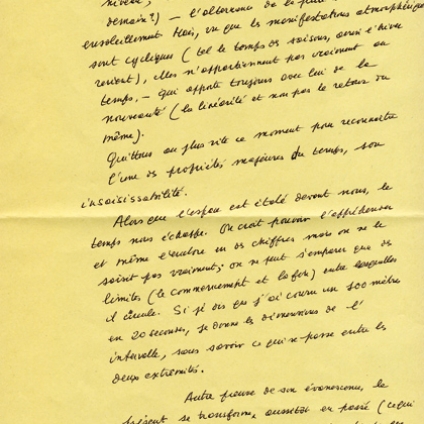 niveau,
demain?) — l'alternance de la pluie
ensoleillement. Mais, vu que les manifestations atmosphériques
sont cycliques (tel le temps des saisons, ainsi l'hiver
revient), elles n'appartiennent pas vraiment au
temps. — Qui apporte toujours avec lui de la
nouveauté (la linéarité et non pas le retour du
même).
Quittons au plus vite ce moment pour reconnaître
l'une des propriétés majeures du temps, son
insaisissabilité.
Alors que l'espace est étalé devant nous, le
temps nous échappe. On croit pouvoir l'appréhender
et même l'enclore en des chiffres mais on ne le
saisit pas vraiment; on ne peut s'emparer que des
limites (le commencement et la fin) entre lesquelles
il circule. Si je dis que j'ai couru un 100 mètres
en 20 secondes, je donne les dimensions de l'
intervalle, sans savoir ce qui se passe entre les
deux extrémités.
Autre preuve de son évanescence, le
présent se transforme aussitôt en passé (celui